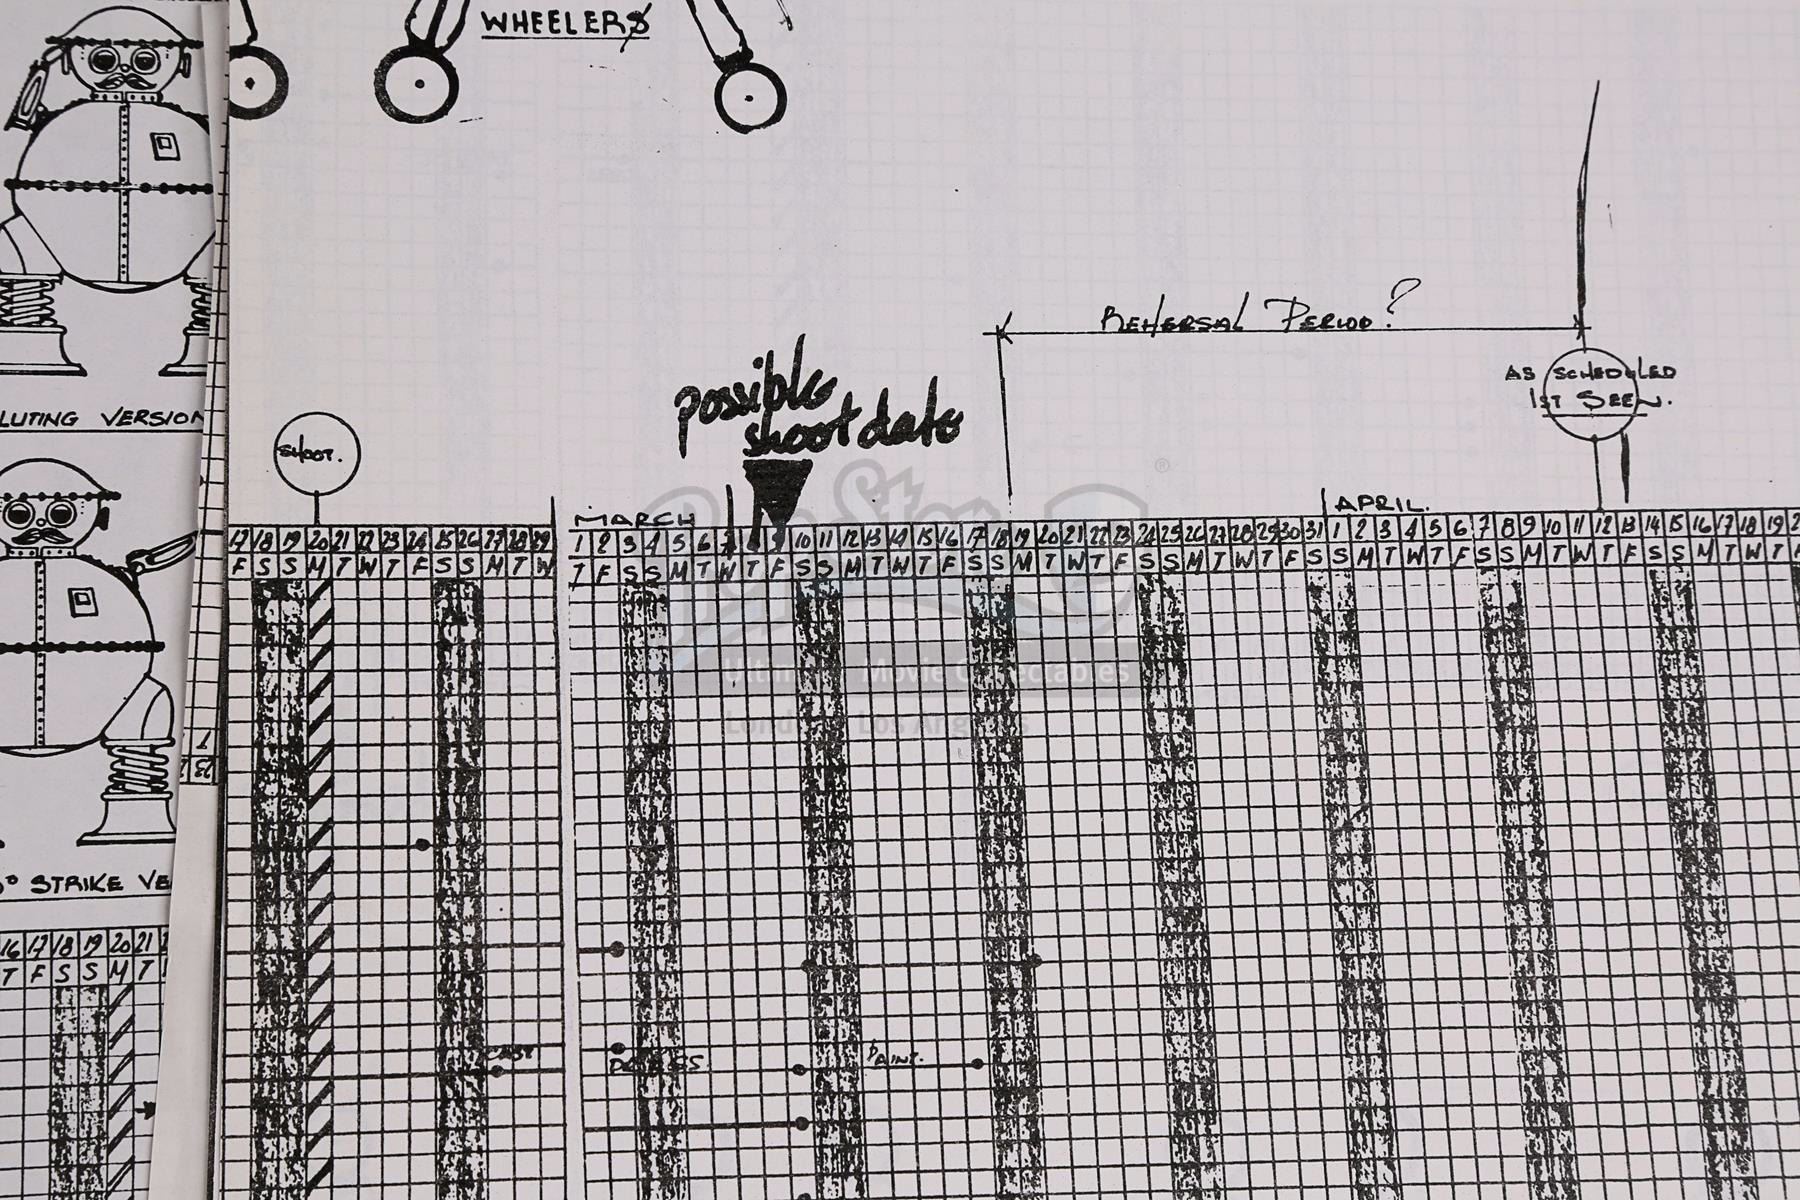 WHEELERS
REHERSAL PERIOD?
AS SCHEDULED
1ST SEEN.
possible
shoot date
LUTING VERSION
SHOOT.
MARCH
APRIL.
17 18 19 20 21 22 23 24 25 26 27 28 29 1 2 3 4 5 6 7 8 9 10 11 12 13 14 15 16 17 18 19 20 21 22 23 24 25 26 27 28 29 30 31 1 2 3 4 5 6 7 8 9 10 11 12 13 14 15 16 17 18 19
F S S M T W T F S S M T W T F S S M T W T F S S M T W T F S S M T W T F S S M T W T F S S M T W T F S S M T W T F S S M T W T
PropStore
Ultimate Movie Collectables
London Los Angeles
STRIKE VE
16 17 18 19 20 21
T F S S M T
PAINT.